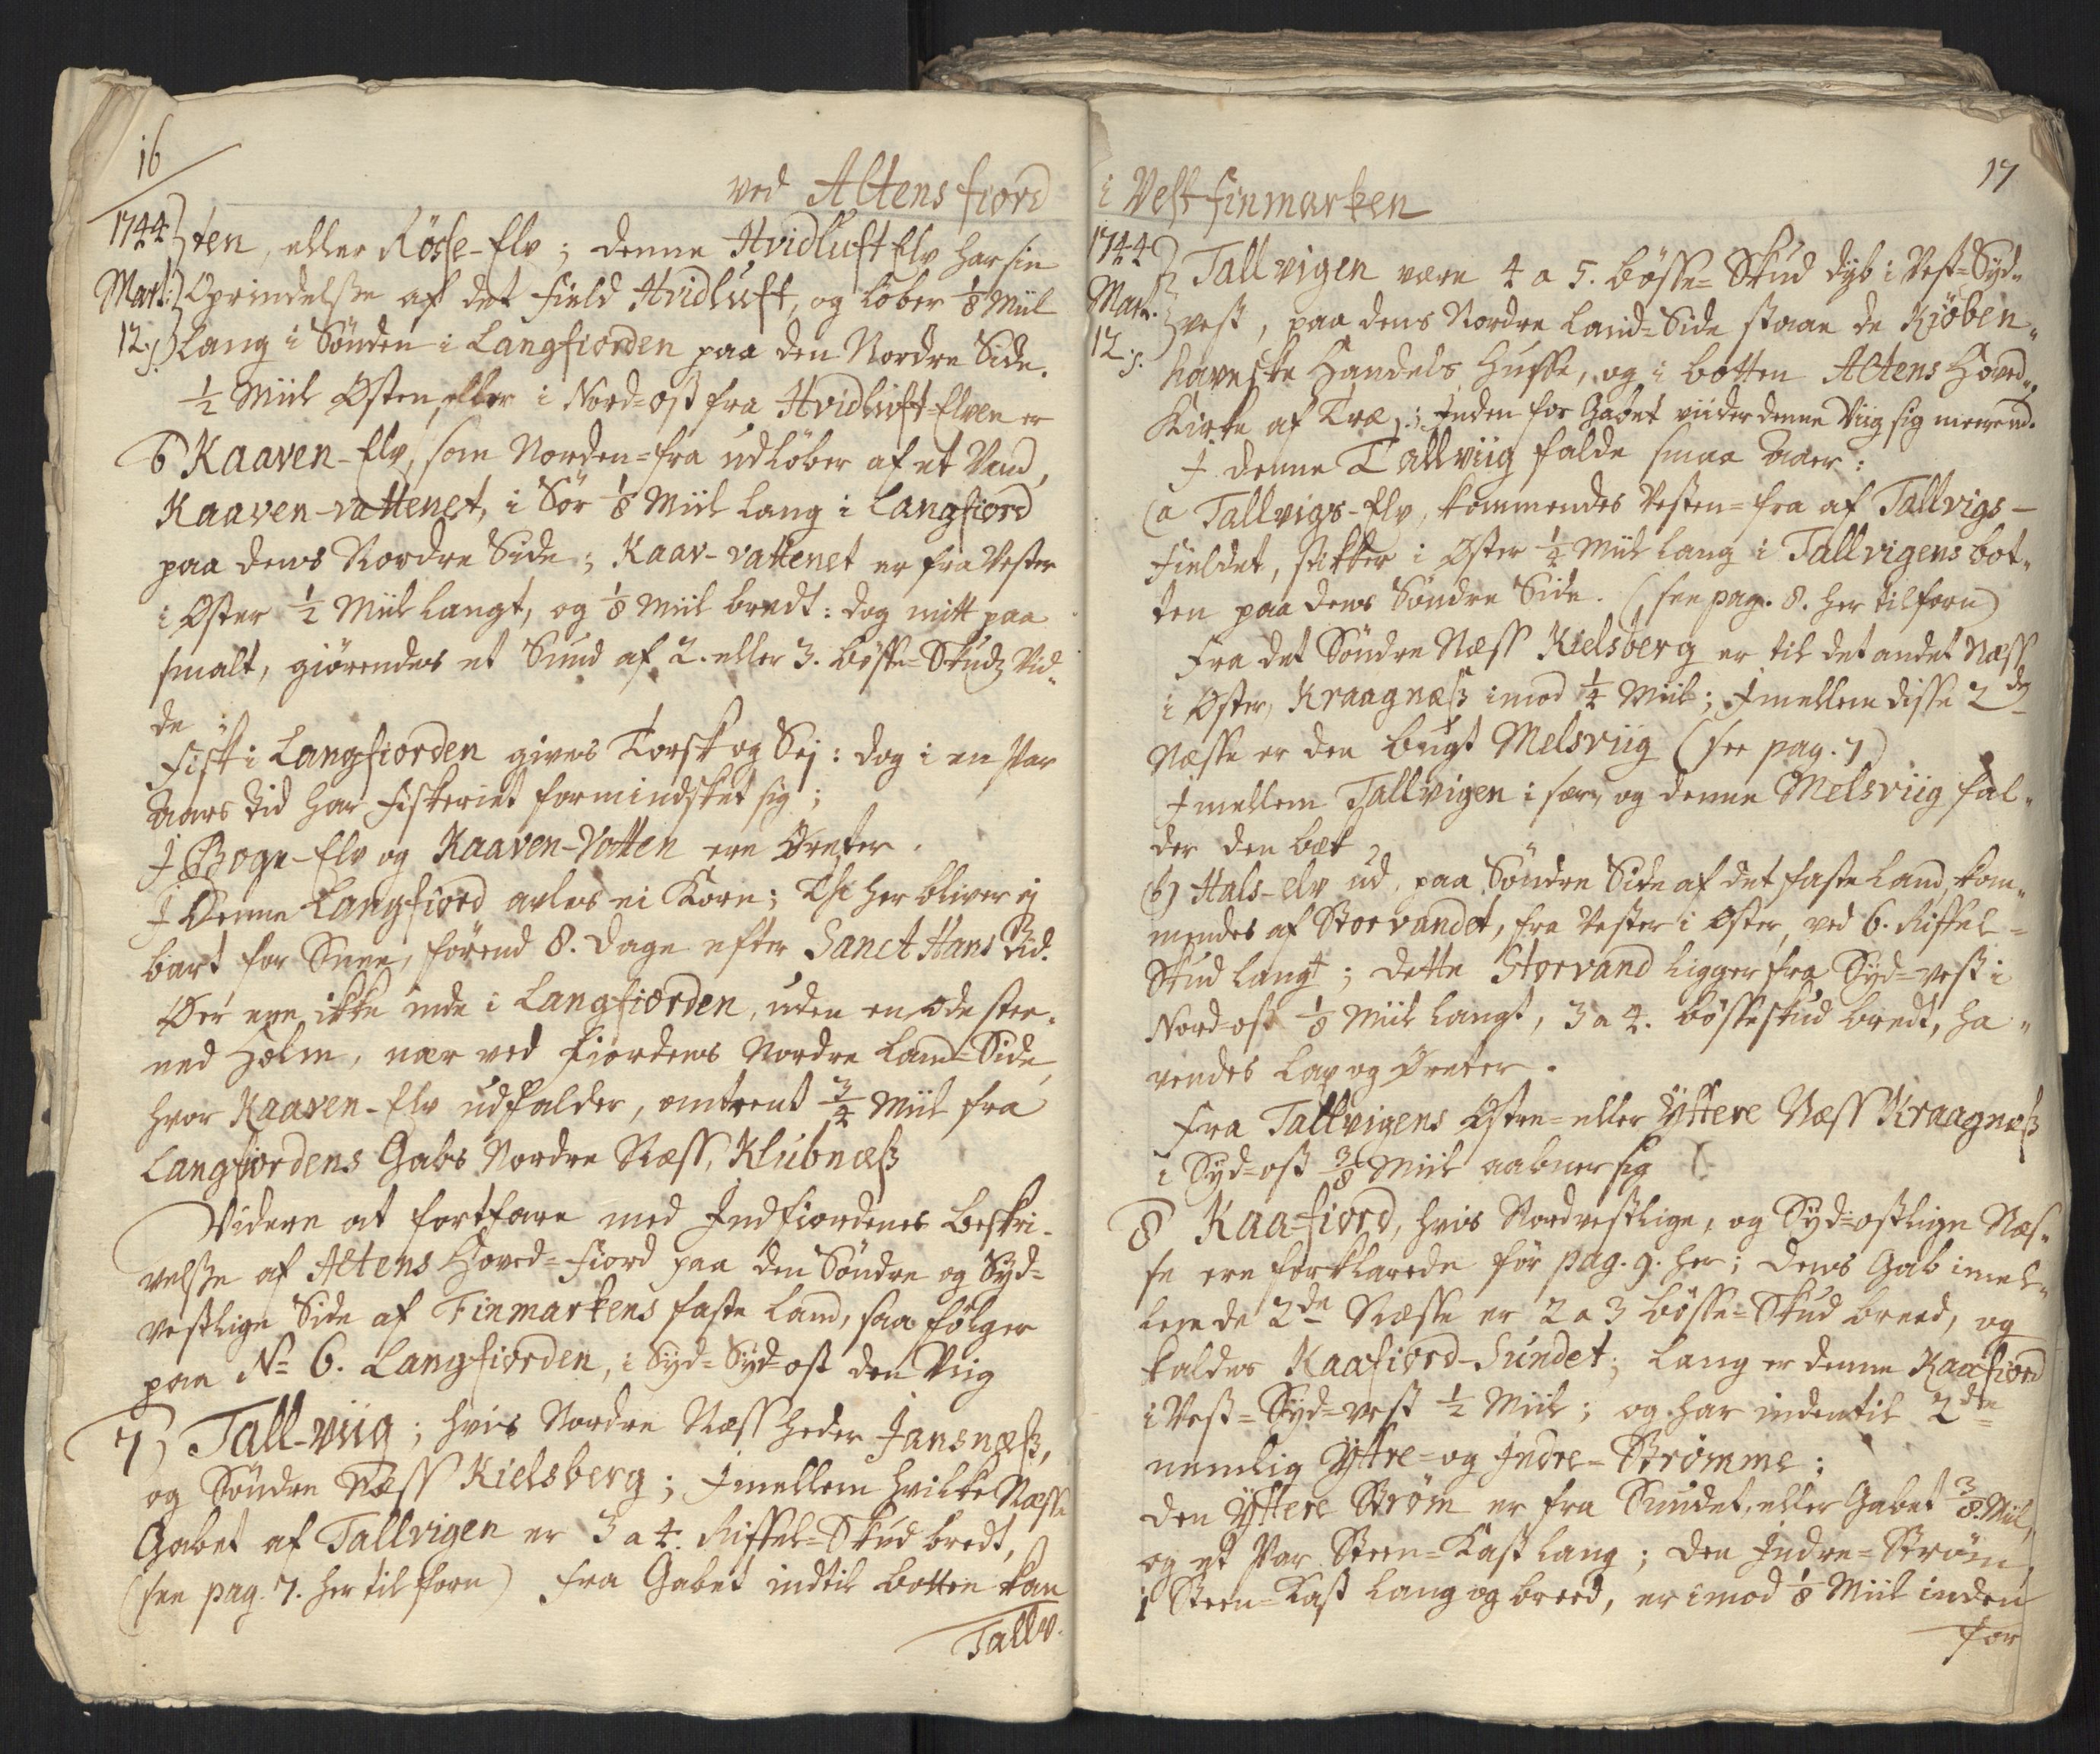 16
ved Altens fiord
1744
Mart:
12. s.
ten, eller Rösse-Elv; denne Hvidluft Elv har sin
Oprindelsse af det field Hvidluft, og löber 1/8 Miil
lang i Sönden i Langfiorden paa den Nordre Side.
1/2 Miil Østen, eller i Nord-ost fra Hvidluft-Elven er
6 Kaaven-Elv, som Norden-fra udlöber af et Vand,
Kaaven-vattenet, i Sör 1/8 Miil lang i Langfiord
paa dens Nordre Side; Kaav-vattenet er fra Vester
i Øster 1/2 Miil langt, og 1/8 Miil bredt: dog mitt paa
smalt, giörendes et Sund af 2. eller 3. bösse-Skudz Vid-
de;
Fisk i Langfiorden gives Torsk og Sej: dog i en par
Aars tid har fiskeriet formindsket sig;
I Bogn-Elv og Kaaven-Vatten ere Ørreter.
I Denne Langfiord avles ei Korn; Thi her bliver ej
bart for Snee, förend 8. dage efter Sanct Hans Tid.
Øer ere ikke inde i Langfiorden, uden en øde stee-
ned Holm, nær ved fiordens Nordre Land-Side,
hvor Kaaven-Elv udfalder, omtrent 3/4 Miil fra
Langfiordens Gabs Nordre Næss, Klubnæss
Videre at fortfare med Indfiordenes Beskri-
velsse af Altens Hoved-fiord paa den Söndre og Syd-
vestlige Side af Finmarkens faste Land, saa fölger
paa No 6. Langfiorden, i Syd-Syd-ost den Viig
7) Tall-viig; hvis Nordre Næss heder Jansnæss,
og Söndre Næss Kielsberg; Imellem hvilke Næsse
Gabet af Tallvigen er 3 a 4. Riffel-Skud bredt,
(see pag. 7. her tilforn) fra Gabet indtil botten kan
Tallv.
17
i Vest finmarken
1744
Mart.
12. s.
Tallvigen være 4 a 5. bösse-Skud dyb i Vest-Syd-
vest, paa dens Nordre Land-Side staae de Kjöben-
havnske Handels Husse, og i botten Altens Hoved-
Kirke af Træ; Inden for Gabet viider denne Viig sig
I denne Tallviig falde smaa Aaer:
(a Tallvigs-Elv, kommendes Vesten-fra af Tallvigs-
Fieldet, stikker i Øster 1/4 Miil lang i Tallvigens bot-
ten paa dens Söndre Side. (see pag. 8. her tilforn)
Fra det Söndre Næss Kielsberg er til det andet Næss
i Øster, Kraagnæss imod 1/4 Miil; Imellem disse 2de
Næsse er den bugt Melsviig (see pag. 7)
Imellem Tallvigen i sær, og denne Melsviig fal-
der den bæk
(b) Hals-elv ud, paa Söndre Side af det faste Land, kom-
mendes af Storvandet, fra Vester i Øster, ved 6. Riffel-
Skud langt; dette Storvand ligger fra Syd-vest i
Nord-ost 1/8 Miil langt, 3 a 4. bösseskud bredt, ha-
vendes Lax og Ørreter.
Fra Tallvigens Østre- eller Yttere Næss Kraagnæss
i Syd-ost 3/8 Miil aabner sig
8 Kaa-fiord, hvis Nordvestlige, og Syd-ostlige Næs-
se ere forklarede för pag. 9. her; dens Gab imel-
lem de 2de Næsse er 2 a 3 bösse-Skud breed, og
kaldes Kaafiord-Sundet; lang er denne Kaafiord
i Vest-Syd-vest 1/2 Miil; og har indentil 2de
nemlig Yttre- og Indre-Strømme;
den Yttere Strøm er fra Sundet, eller Gabet 3/8 Miil,
og et par Steen-Kast lang; den Indre-Strøm,
1 Steen-Kast lang og breed, er imod 1/8 Miil inden
for